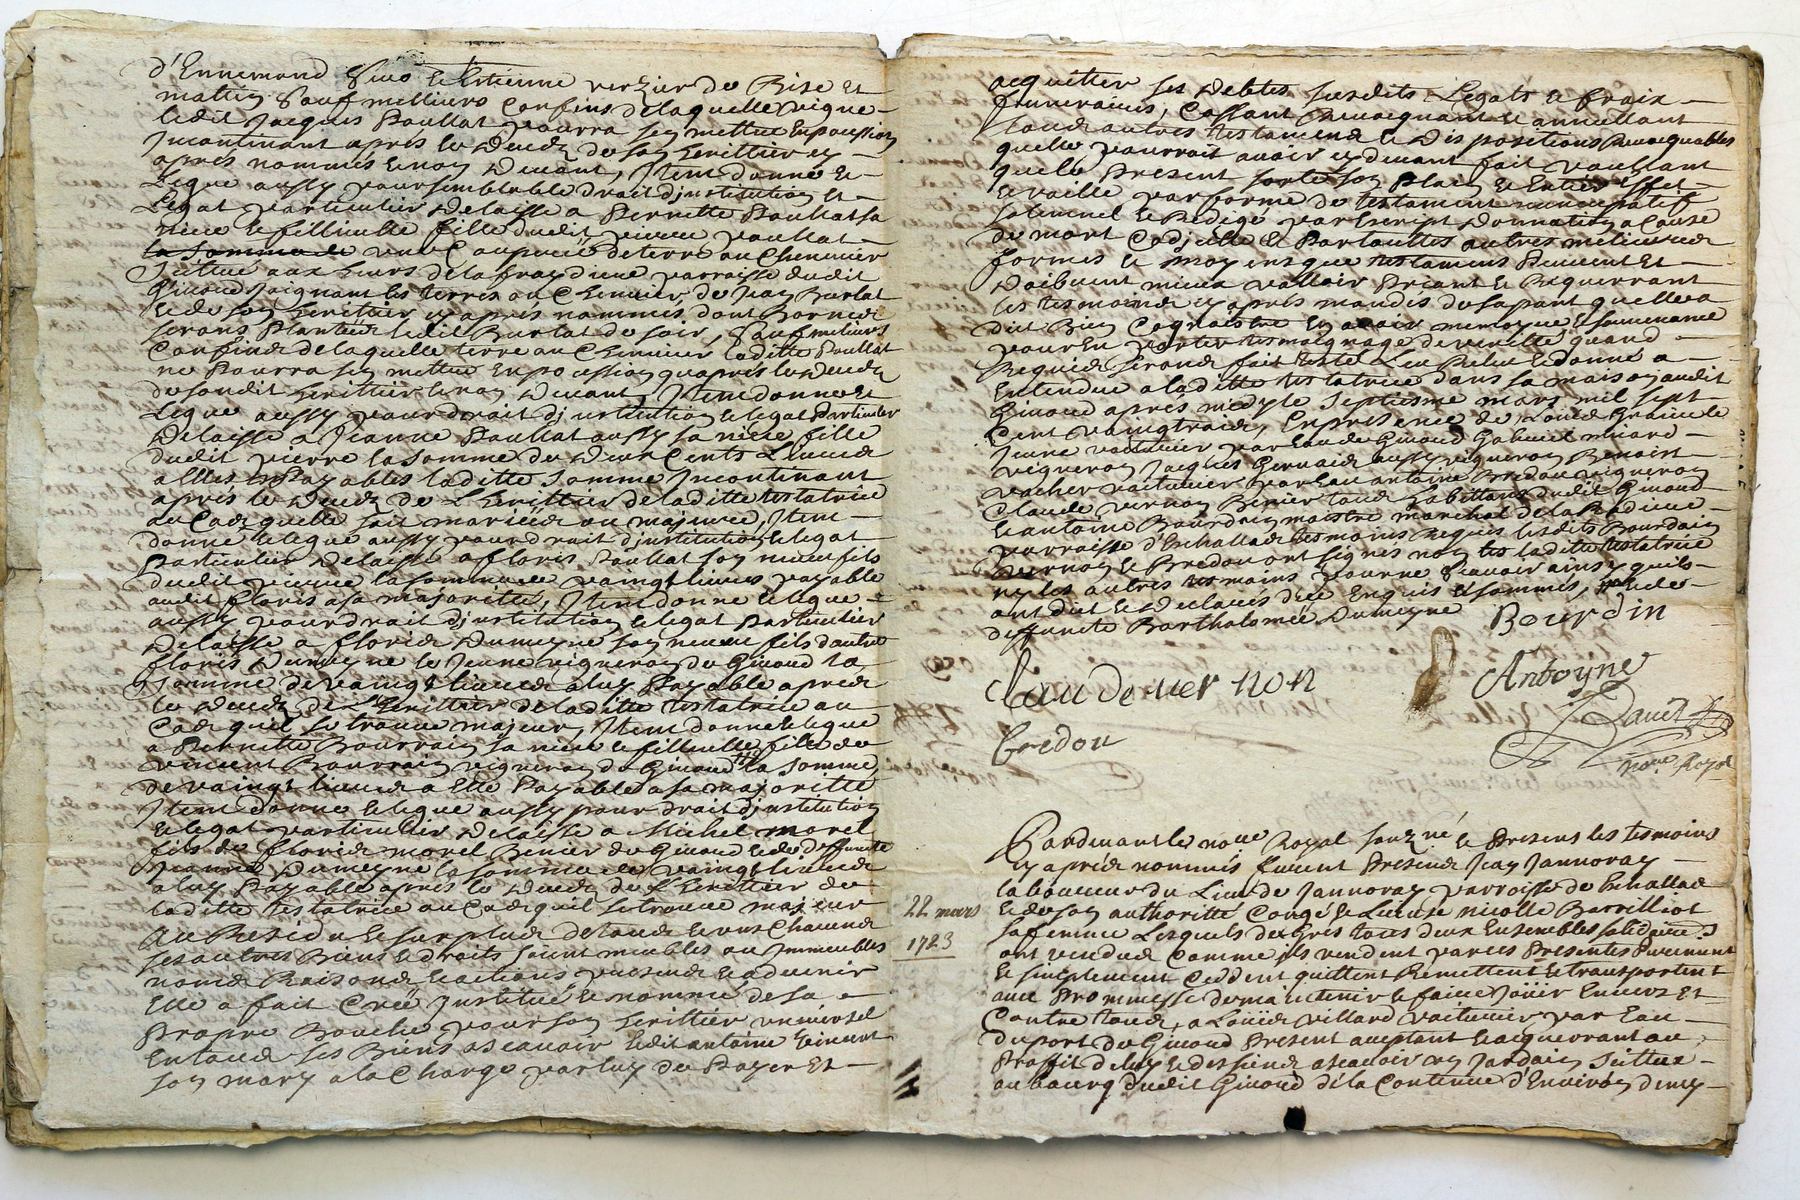 d'Ennemond Vivo & Estienne verzier de Bise et
mattin Sauf meilliurs Confins de laquelle vigne
ledit Jacques Paullat pourra sen mettre En possession
Jncontinant apres le deceds de son heritier cy
apres nommés & non devant, Jtem donne &
Legue aussy pour semblable droit djnstitution et
Legat particulier delaisse a Pernette Paullat sa
niece & fillieulle fille dudit pierre paullat
la somme de une Coupée de terre au Chenevier
Scittue aux lieux de la fraydiere parroisse dudit
Givord Joignant les terres au Chenevier, de Jean Burlat
& de son heritier cy apres nommés dont Bornes
serons Plantées ledit Burlat de soir, Sauf meilieurs
Confins de laquelle terre au Chenevier laditte Paullat
ne Pourra sen mettre En possession quapres le deceds
de sondit heritier & non devant, Jtem donne et
Legue aussy pour droit djnstitution & legat particulier
delaisse a Jeanne Paullat aussy sa niece fille
dudit pierre la somme de deux Cents Livres
a Elle Payables laditte somme Jncontinant
apres le deceds de L'heritier de laditte testatrice
au Cas quelle soit mariée ou majeure, Jtem
donne & legue aussy pour droit djnstitution & legat
Particulier delaisse a floris Paullat son neveu fils
dudit pierre la somme de vaingt livres payable
audit floris a sa majorité, Jtem donne & legue
aussy pour droit djnstitution & legat Particulier
delaisse a floris Dumeyne son neveu fils d'autre
floris Dumeyne le Jeune vigneron de Givord la
somme de vaingt livres a luy Payable apres
le deceds de L'heritier de laditte testatrice au
Cas quil se trouve majeur, Jtem donne & legue
a Pernette Bourrain sa niece & fillieulle fille de
vincent Bourrain vigneron de Givord la somme
de vaingt livres a Elle Payables a sa majoritté
Jtem donne & legue aussy pour droit djnstitution
& legat particullier delaisse a Michel morel
fils de floris morel Benier de Givord & de deffuncte
Jeanne Dumeyne la somme de vaingt livres
a luy Payable apres le deceds de L'heritier de
laditte testatrice au Cas quil se trouve majeur
Au Residu & surplus de tous & uns Chacuns
ses autres Biens & droits soient meubles ou Jmmeubles
noms Raisons & actions presens & advenir
Elle a fait Créé Jnstitué & nommé de sa
Propre Bouche pour son heritier universel
En tous ses Biens a scavoir ledit antoine
son mary a la Charge par luy de Payer et
acquitter ses debtes susdits Legats & fraix
funeraires, Cassant Revocquant & annullant
tous autres testamens & dispositions Revocquables
quelle pourroit avoir cy devant fait voullant
quelle Present sorte son Plain & Entier Effet
& vaille par forme de testament nuncupatif
solennel & Redigé par Escript donnation a Cause
de mort Codjcille & Partouttes autres meilieures
formes & moyens que testamens Peuvent et
doibvent mieux valloir Priant & Requerrant
les tesmoins cy apres mandis de sa part quelle a
dit Bien Cognoistre En avoir memoyre & souvenance
pour En porter tesmoignage de verité quand
Requis seront fait & donne a
Entendre a laditte testatrice dans sa maison audit
Givord apres midy le Septiesme mars mil sept
Cent vaingtrois, En presence de Louis
Jeune voiturier par Eau de Givord Gabriel
vigneron Jacques Gervais aussy vigneron Benoist
vacher voiturier par Eau antoine Bredou vigneron
Claude vernon Benier tous habittans dudit Givord
& antoine Bourdin maistre marchal de la
parroisse d'Eschallas tesmoins Requis lesdits Bourdain
vernon & Bredou ont signés non les laditte testatrice
ny les autres tesmoins Pour ne Scavoir ainsy quils
ont dit & declarés de ce Enquis & sommés,
deffuncte Barthelomée Dumeyne
Bourdin
Claude vernon
Antoyne
Bredou
nore Royal
22 mars
1723
Pardevant le nore Royal souzné & Presens les tesmoins
cy apres nommés furent Presens Jean Jannoray
laboureur du Lieu de Jannoray parroisse de Eschallas
& de son authoritté Congé & License Nicolle Barrilliot
sa femme Lesquels de Gres tous deux Ensembles
ont vendus Comme ils vendent par ces Presentes Purement
& simplement Ceddent quittent Remettent & transportent
avec Prommesse de maintenir & faire Joüir Envers Et
Contre tous, a Loüis villard voiturier par Eau
du port de Givord Present aceptant & acquerrant au
Proffit de luy & des siens a scavoir un Jardain Scittue
au bourg dudit Givord de la Contenue d'Environ demy